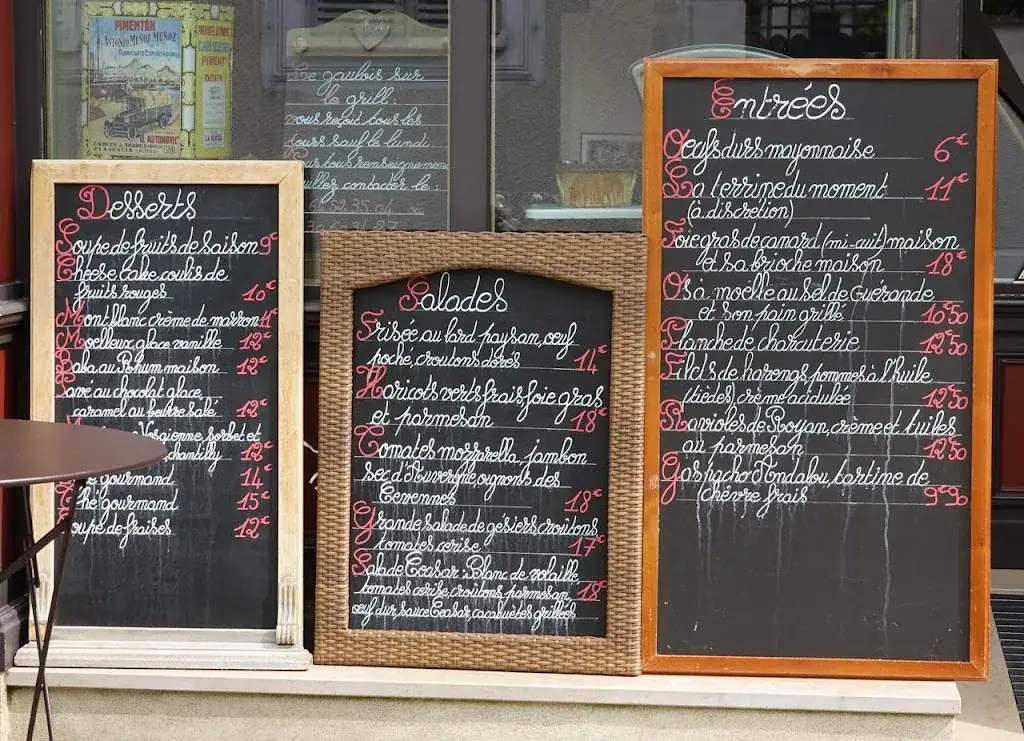 PIMENTÓN
ANTONIO MUÑOZ MUÑOZ
PIMENT
DOUX
D. AUTONOVIC
Le gaulois sur
le grill:
vous reçoit tous les
jours sauf le lundi
contacter le:
Desserts
Soupe de fruits de saison 9€
Cheese Cake coulis de
fruits rouges 10€
Mont blanc crème de marron 11€
Moelleux, glace vanille 12€
Baba au Rhum maison 12€
Pavé au chocolat glace,
caramel au beurre salé 12€
Vosgienne, sorbet et
chantilly 12€
gourmand 14€
gourmand 15€
oupe de fraises 12€
Salades
Frisée au lard paysan, œuf
poché, croutons dorés 14€
Haricots verts frais foie gras
et parmesan 18€
Tomates mozzarella, jambon
sec d'Auvergne oignons des
Cevennes 18€
Grande salade de gesiers, croûtons,
tomates cerise 17€
Salade Ceasar: Blanc de volaille,
tomates cerise, croûtons, parmesan 18€
œuf dur, sauce Ceasar, cacahuètes grillées
Entrées
Oeufs durs mayonnaise 6€
La terrine du moment 11€
(à discretion)
Foie gras de canard (mi-cuit) maison
et sa brioche maison 18€
Os à moelle au sel de Guerande
et son pain grillé 10€50
Planche de charcuterie 12€50
Filets de harengs pommes à l'huile
(tièdes), crème acidulée 12€50
Ravioles de Royan, crème et tuiles
au parmesan 12€50
Gaspacho Andalou, tartine de
chèvre frais 9€90